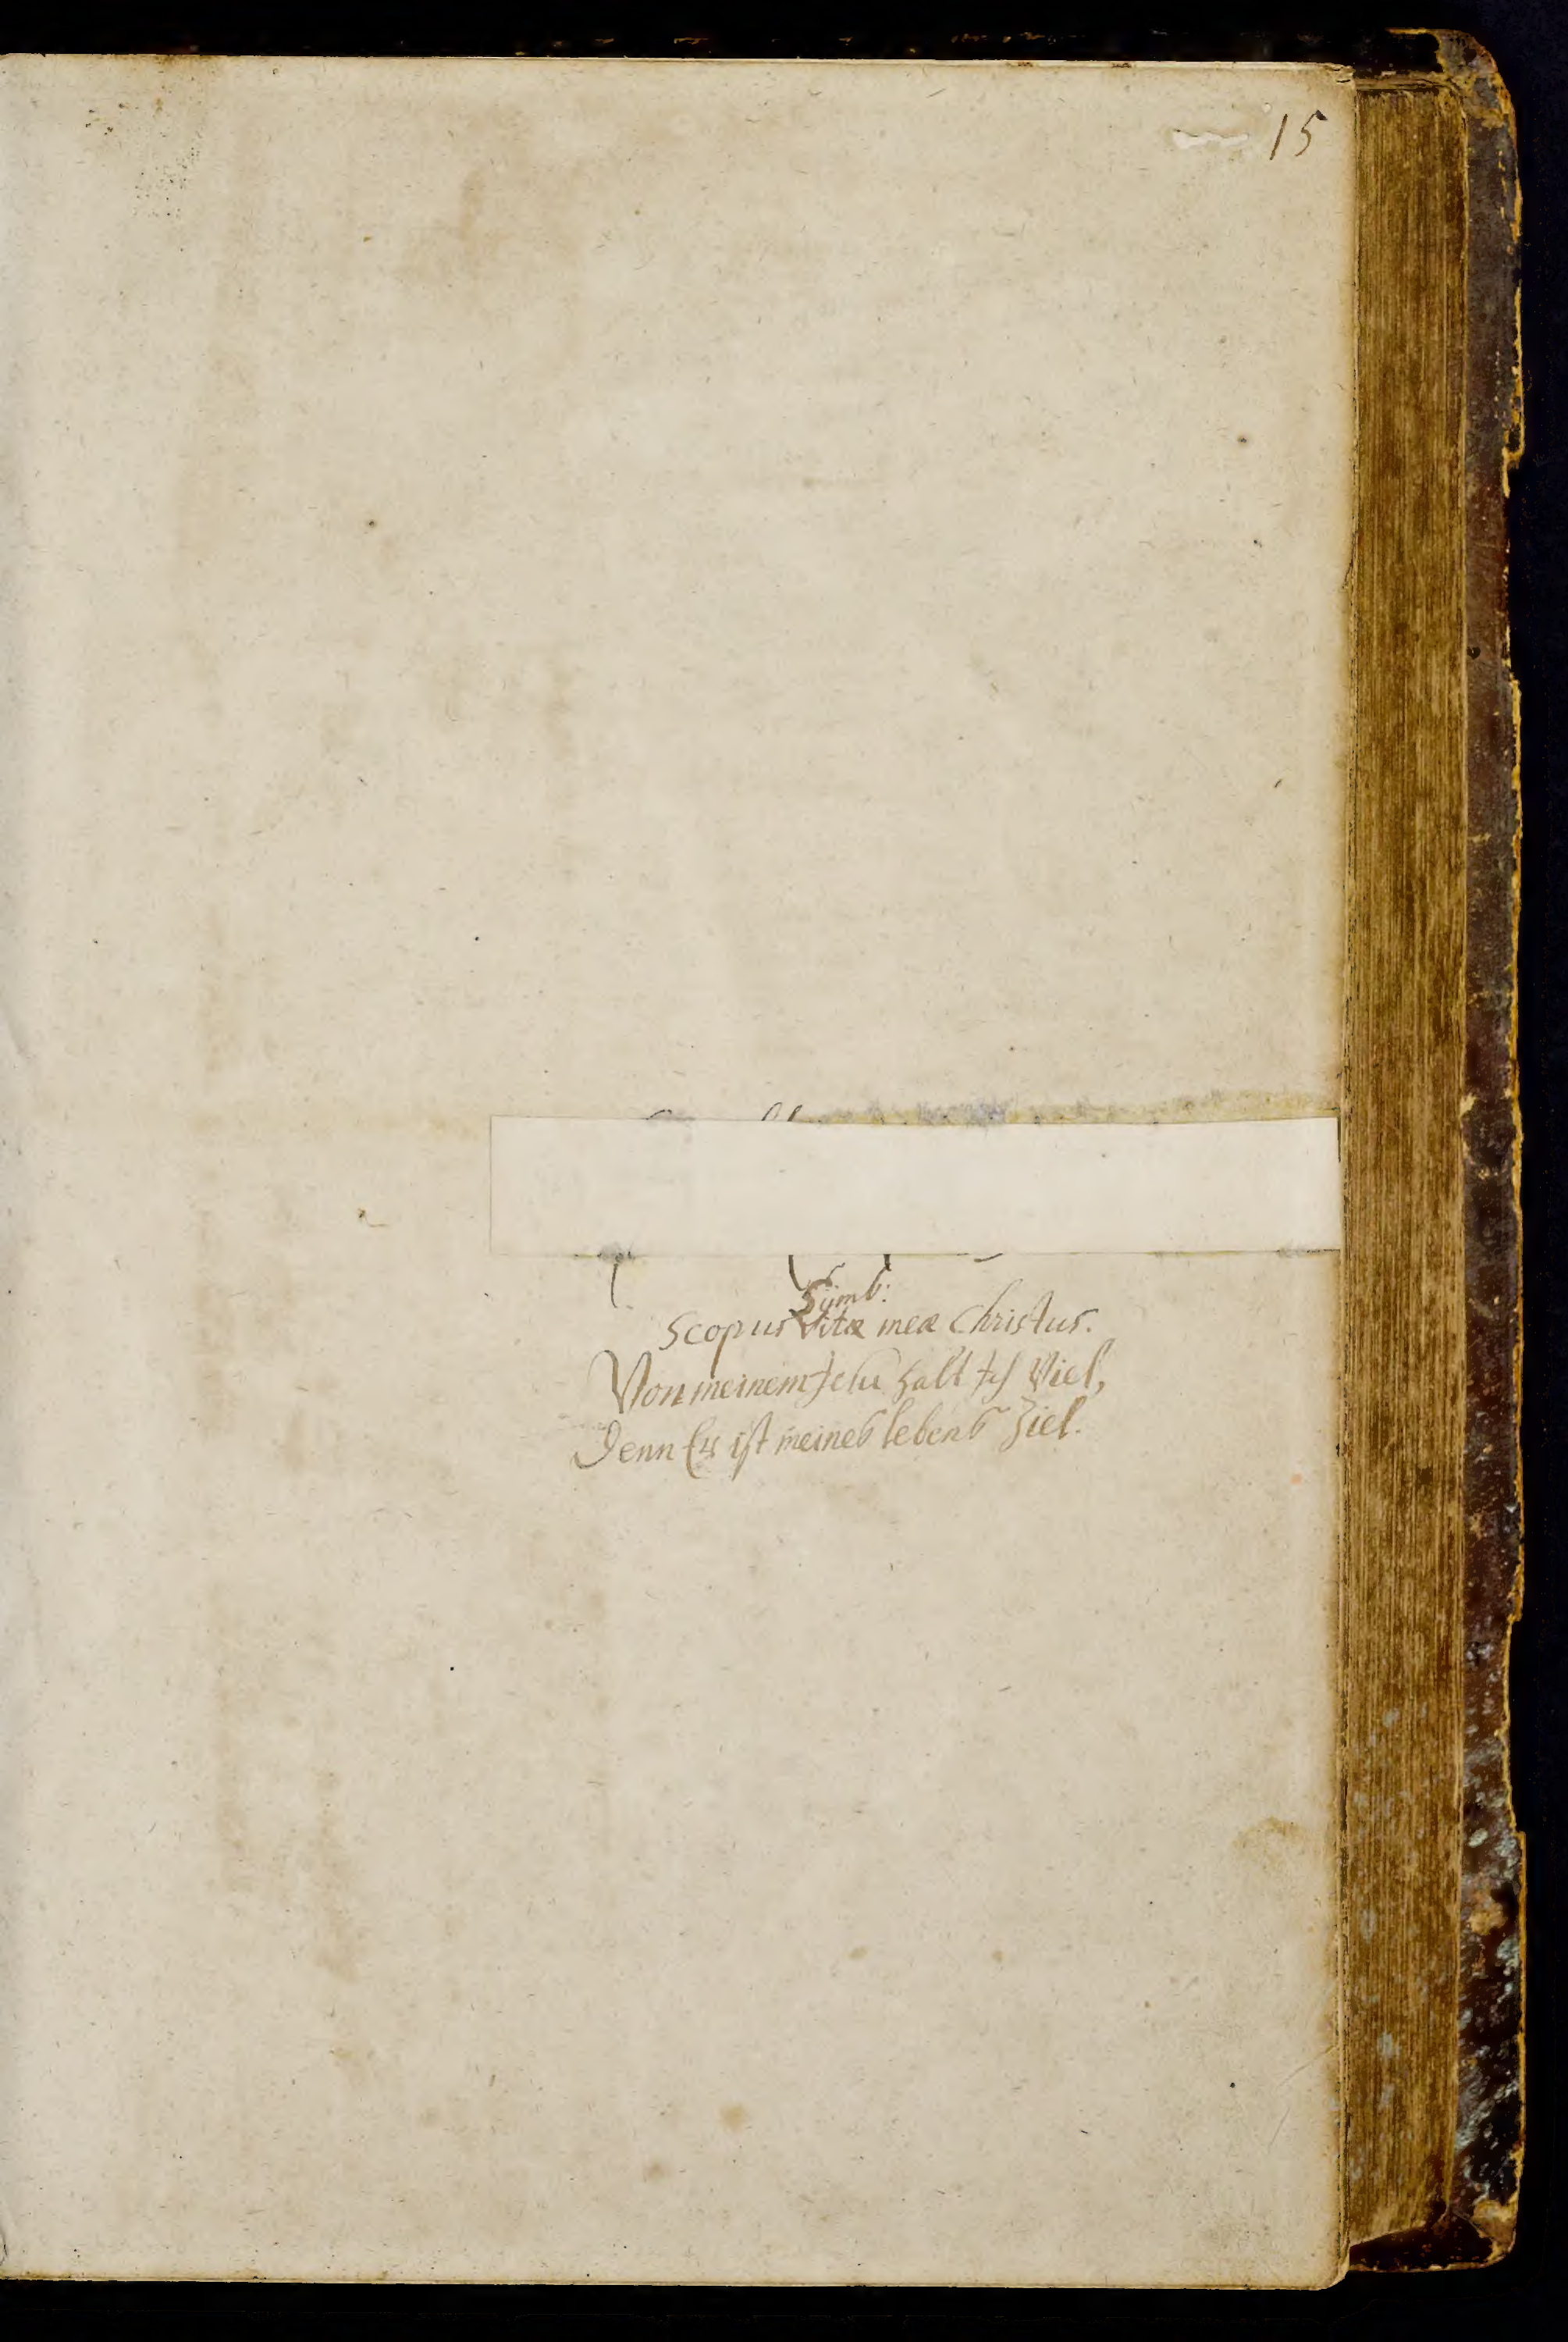 15
Symb:
Scopus Vitæ meæ Christus.
Von meinem Jesu halt Ich Viel,
Denn Er ist meines lebens Ziel.